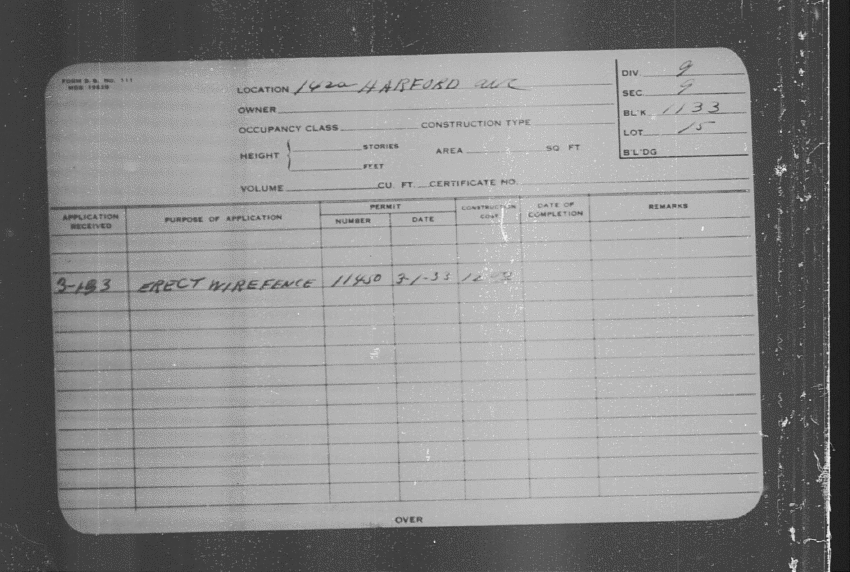 FORM B. B. NO. 111
LOCATION 1422 HARFORD AVE
OWNER
OCCUPANCY CLASS CONSTRUCTION TYPE
HEIGHT STORIES AREA SQ FT
FEET
VOLUME CU. FT. CERTIFICATE NO.
DIV. 9
SEC 9
BL'K 1133
LOT 15
B'L'DG
APPLICATION RECEIVED PURPOSE OF APPLICATION PERMIT NUMBER DATE CONSTRUCTION COST DATE OF COMPLETION REMARKS
ERECT WIRE FENCE 11450 3-1-33 12
OVER